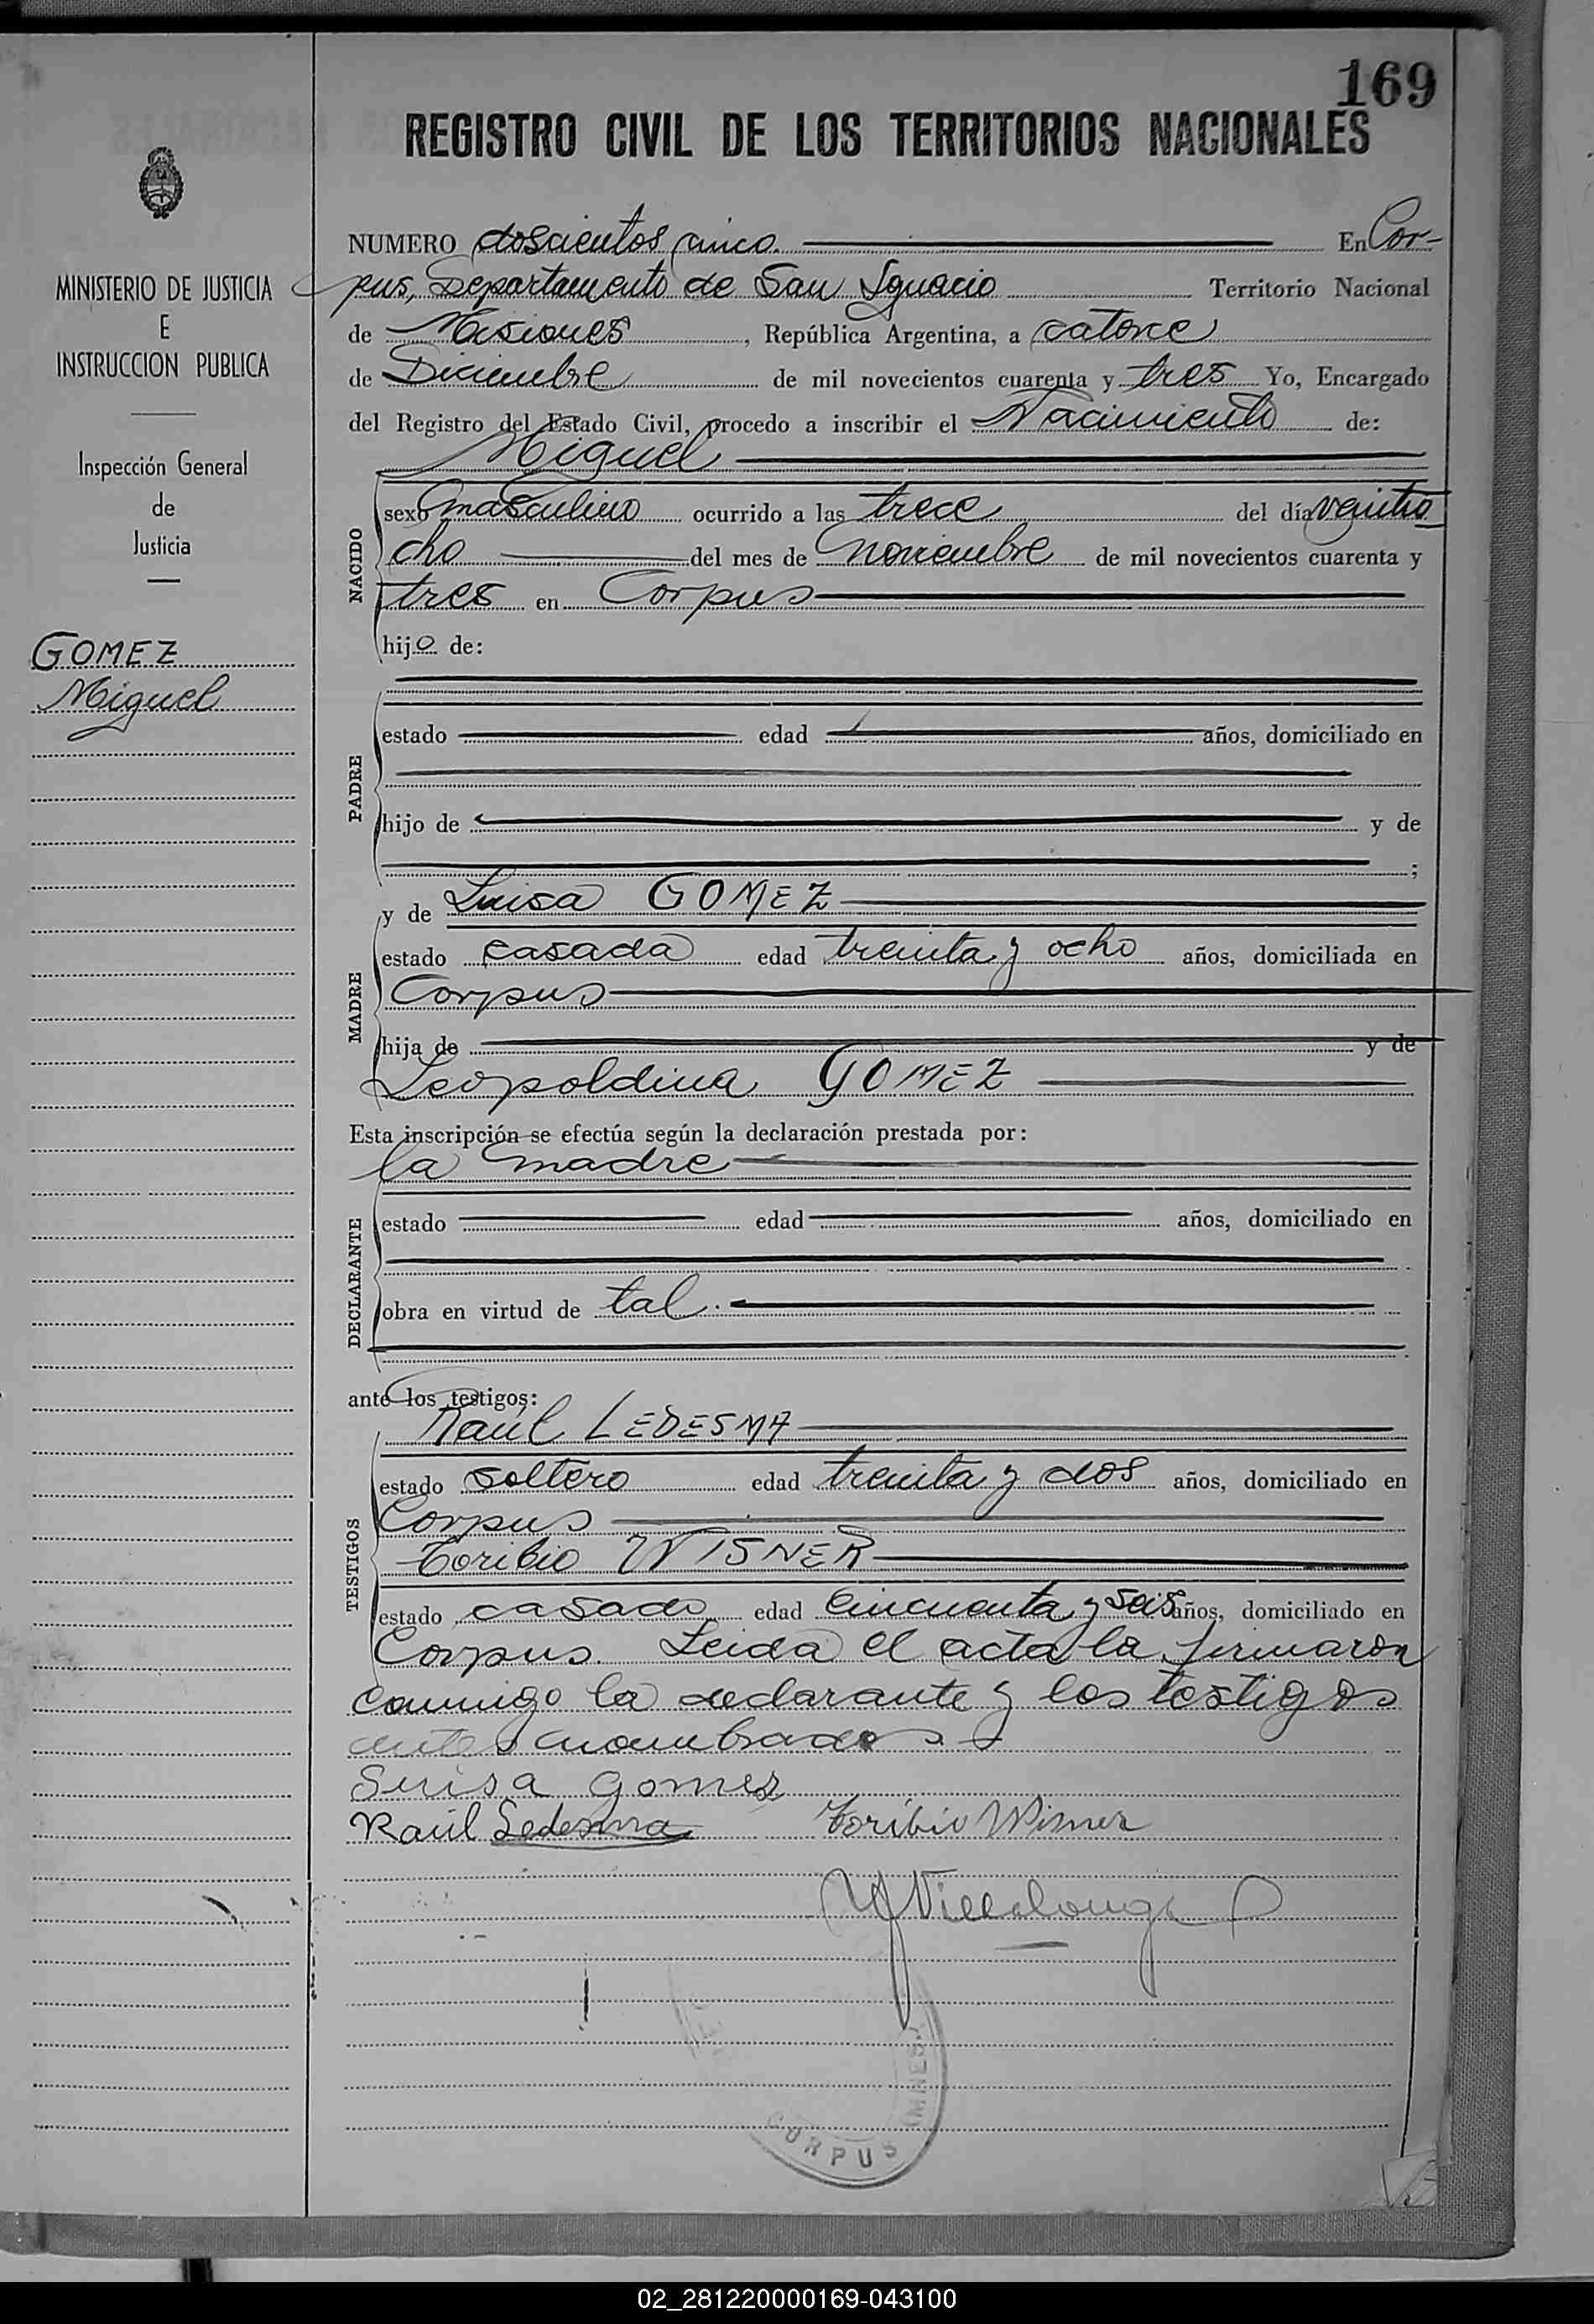 169
REGISTRO CIVIL DE LOS TERRITORIOS NACIONALES
MINISTERIO DE JUSTICIA
E
INSTRUCCION PUBLICA
Inspección General
de
Justicia
GOMEZ
Miguel
NUMERO doscientos cinco. En Cor-
pus, Departamento de San Ignacio Territorio Nacional
de Misiones, República Argentina, a catorce
de Diciembre de mil novecientos cuarenta y tres Yo, Encargado
del Registro del Estado Civil, procedo a inscribir el Nacimiento de:
Miguel
NACIDO
sexo masculino ocurrido a las trece del día veintio
cho del mes de noviembre de mil novecientos cuarenta y
tres en Corpus
hijo de:
PADRE
estado edad años, domiciliado en
hijo de y de
;
MADRE
y de Luisa GOMEZ
estado casada edad treinta y ocho años, domiciliada en
Corpus
hija de y de
Leopoldina GOMEZ
Esta inscripción se efectúa según la declaración prestada por:
la madre
DECLARANTE
estado edad años, domiciliado en
obra en virtud de tal.
ante los testigos:
TESTIGOS
Raúl LEDESMA
estado soltero edad treinta y dos años, domiciliado en
Corpus
Toribio WISNER
estado casado edad cincuenta y seis años, domiciliado en
Corpus. Leida el acta la firmaron
conmigo la declarante y los testigos
antes nombrados.
Luisa gomez
Raúl Ledesma Toribio Wisner
Villalonga
CORPUS (MNES.)
02_281220000169-043100